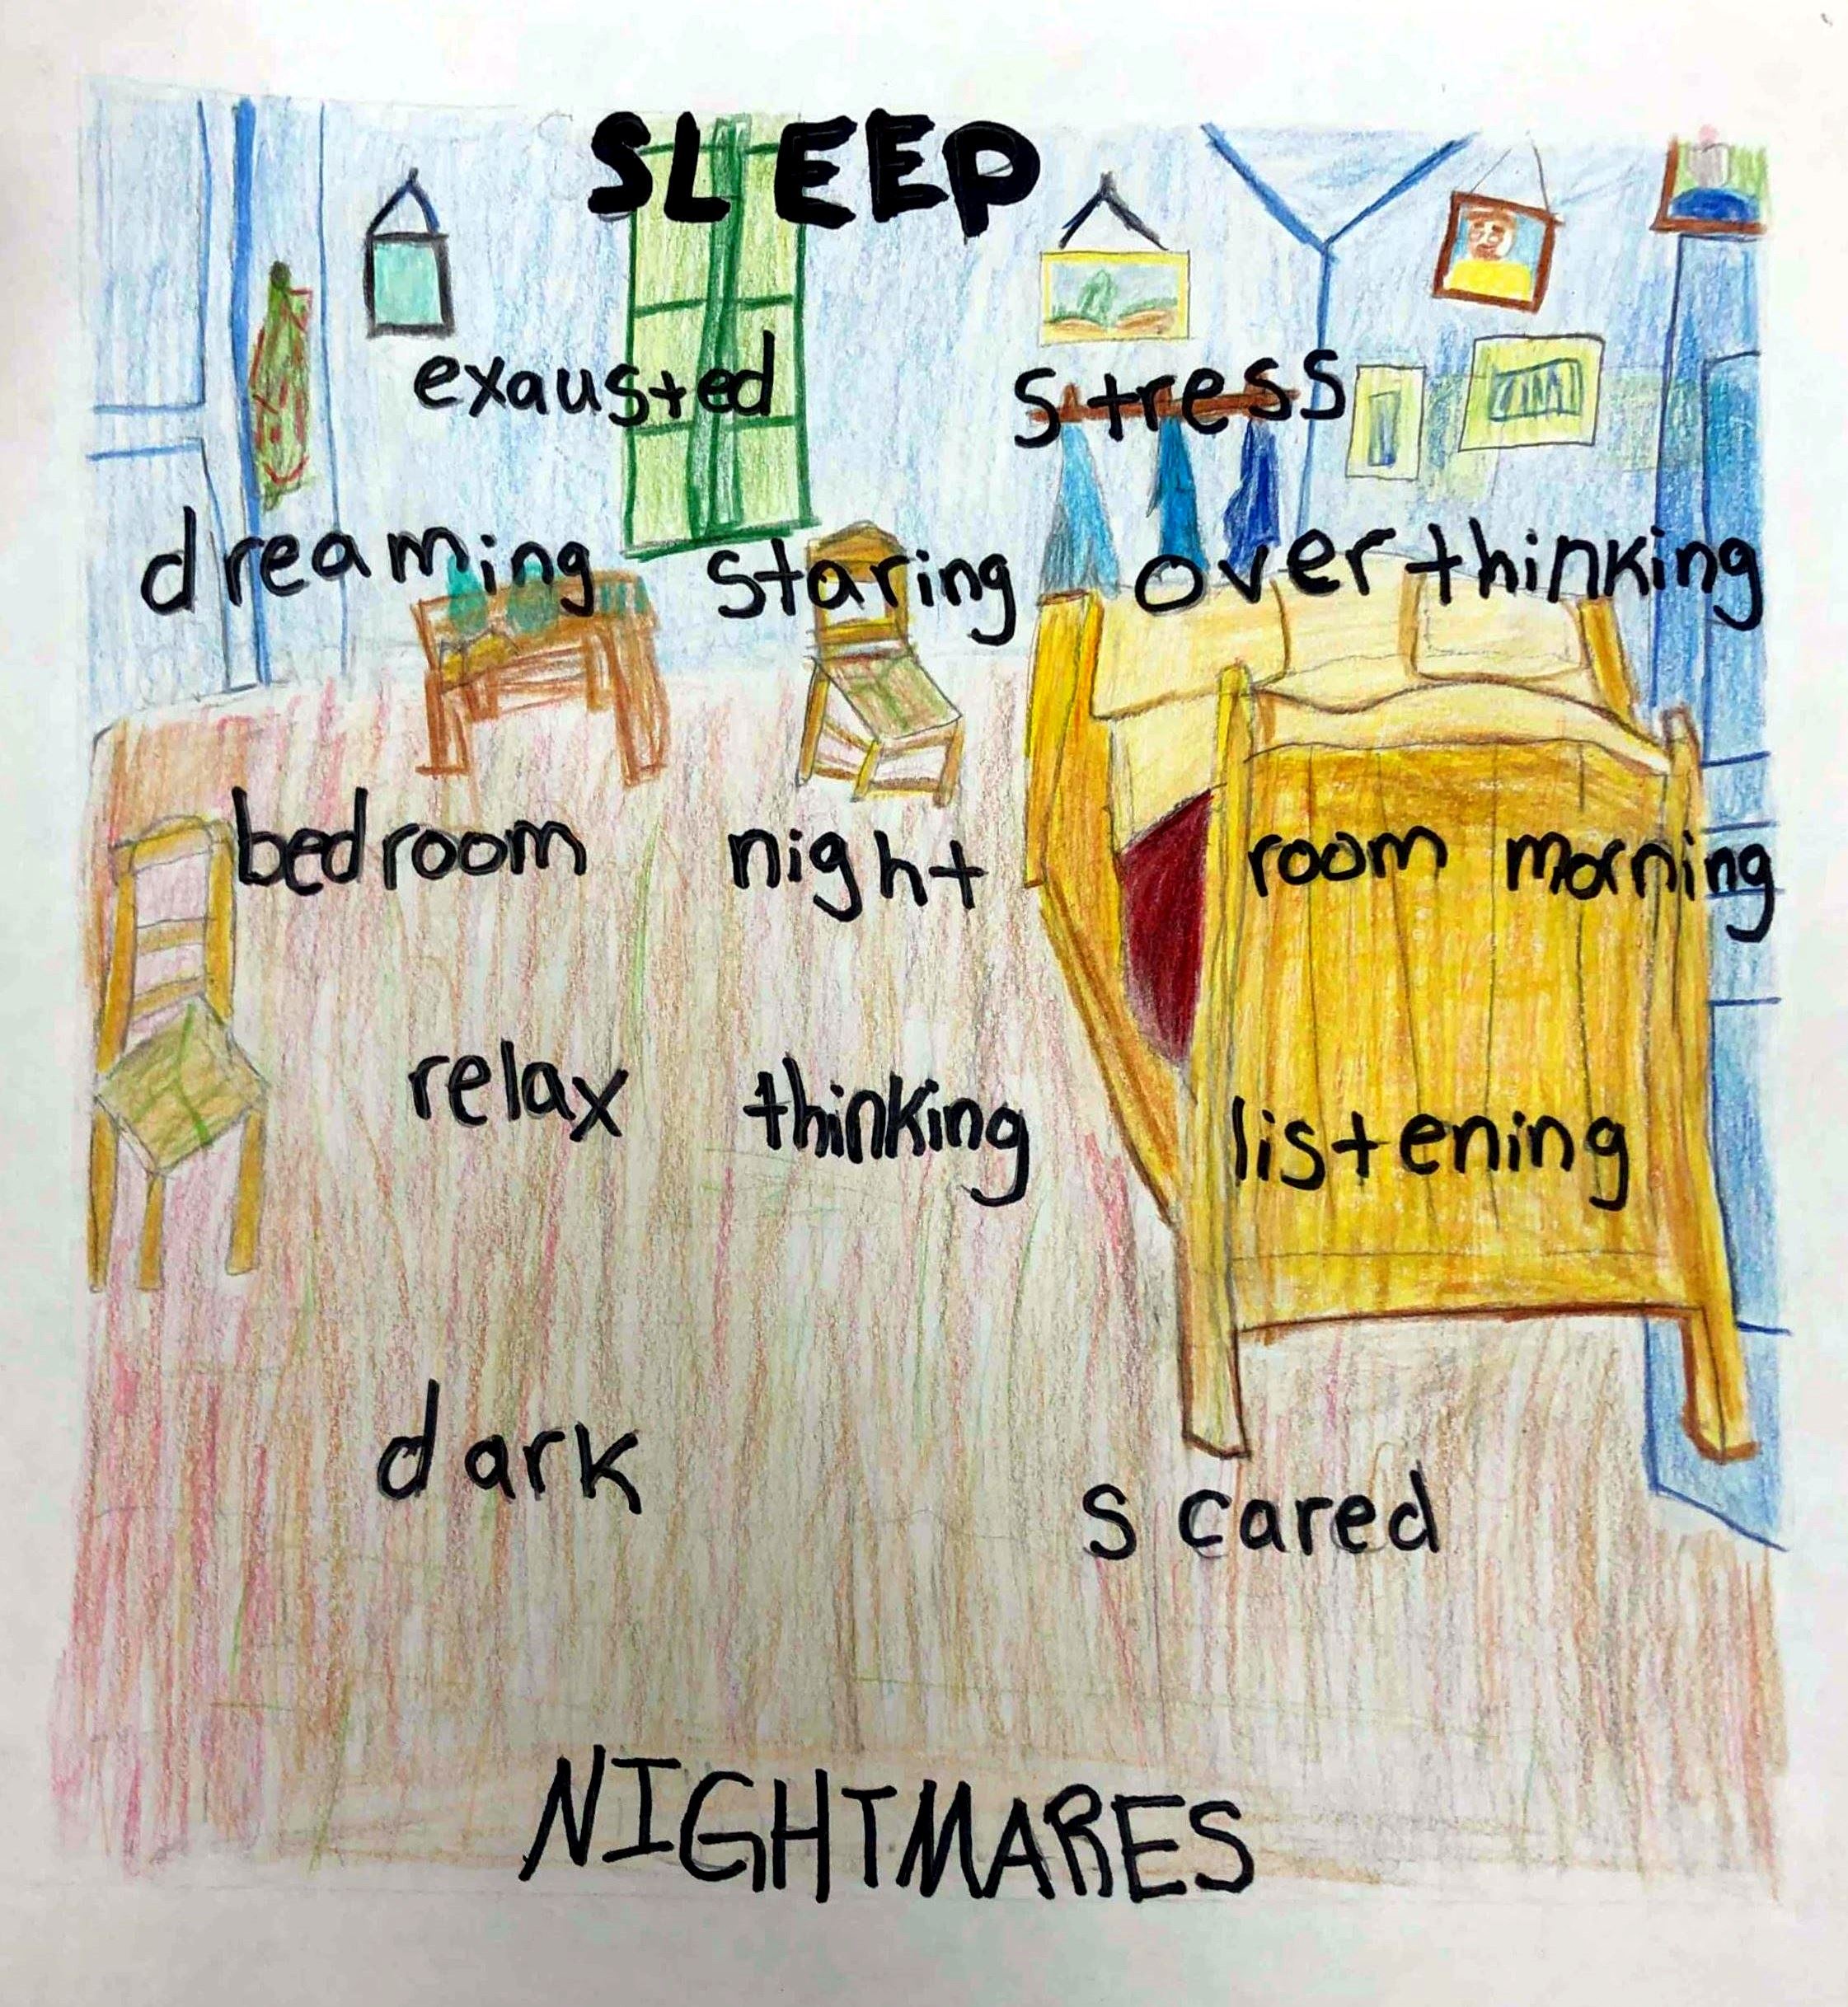 SLEEP
exausted stress
dreaming staring overthinking
bedroom night room morning
relax thinking listening
dark scared
NIGHTMARES